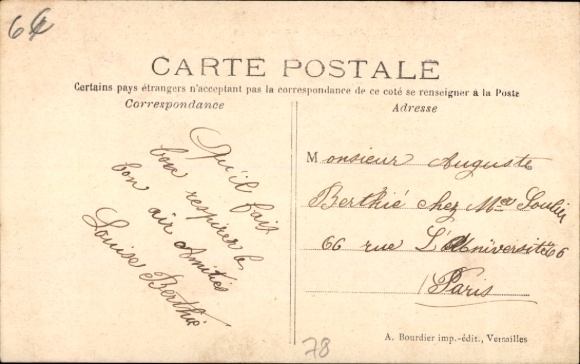 6
CARTE POSTALE
Certains pays étrangers n'acceptant pas la correspondance de ce coté se renseigner à la Poste
Correspondance
Adresse
Qu'il fait
bon respirer le
bon air Amitiés
Louise Berthié
Monsieur Auguste
Berthié chez Mme Soulier
66 rue L'Université 66
Paris
A. Bourdier imp.-édit., Versailles
78